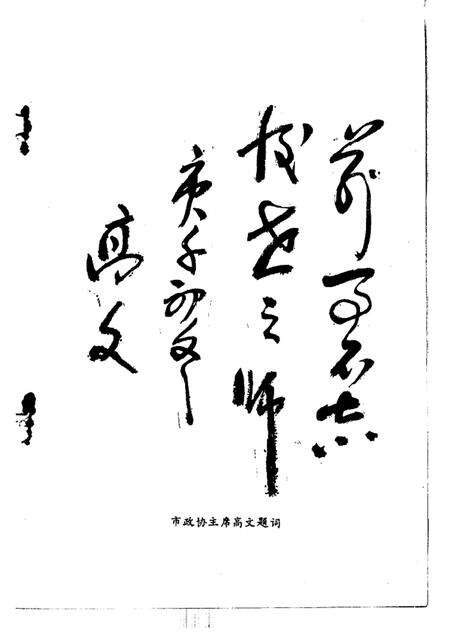 前事不忘
後世之师
庚午初夏
高文
市政协主席高文题词